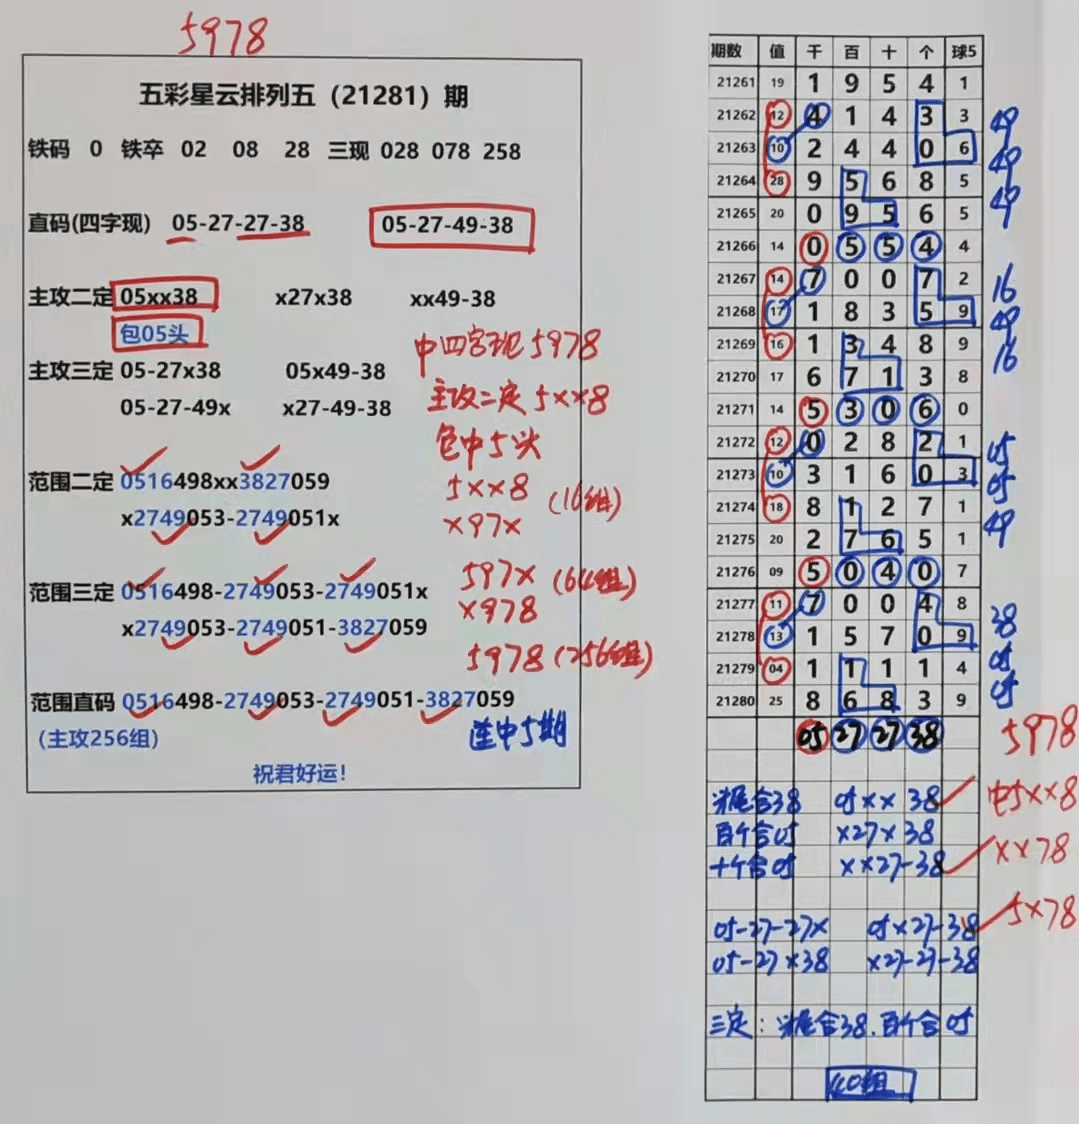 5978
五彩星云排列五（21281）期
铁码 0 铁卒 02 08 28 三现 028 078 258
直码(四字现) 05-27-27-38 05-27-49-38
主攻二定 05xx38 x27x38 xx49-38
包05头
中四字现5978
主攻三定 05-27x38 05x49-38
主攻二定5××8
05-27-49x x27-49-38
包中5头
范围二定 0516498xx3827059
5××8 (16组)
x2749053-2749051x
×97×
范围三定 0516498-2749053-2749051x
597× (64组)
x2749053-2749051-3827059
×978
5978 (256组)
范围直码 0516498-2749053-2749051-3827059
(主攻256组)
连中5期
祝君好运！
期数 值 千 百 十 个 球5
21261 19 1 9 5 4 1
21262 12 4 1 4 3 3 49
21263 10 2 4 4 0 6 49
21264 28 9 5 6 8 5 49
21265 20 0 9 5 6 5
21266 14 0 5 5 4 4
21267 14 7 0 0 7 2 16
21268 17 1 8 3 5 9 49
21269 16 1 3 4 8 9 16
21270 17 6 7 1 3 8
21271 14 5 3 0 6 0
21272 12 0 2 8 2 1 05
21273 10 3 1 6 0 3 05
21274 18 8 1 2 7 1 49
21275 20 2 7 6 5 1
21276 09 5 0 4 0 7
21277 11 7 0 0 4 8 38
21278 13 1 5 7 0 9 05
21279 04 1 1 1 1 4 05
21280 25 8 6 8 3 9
05 27 27 38 5978
头尾合38 05×× 38 中5××8
百个合05 ×27×38
十个合05 ××27-38 ××78
05-27-27× 05×27-38 5×78
05-27×38 ×27-27-38
三定：头尾合38.百个合05
40组